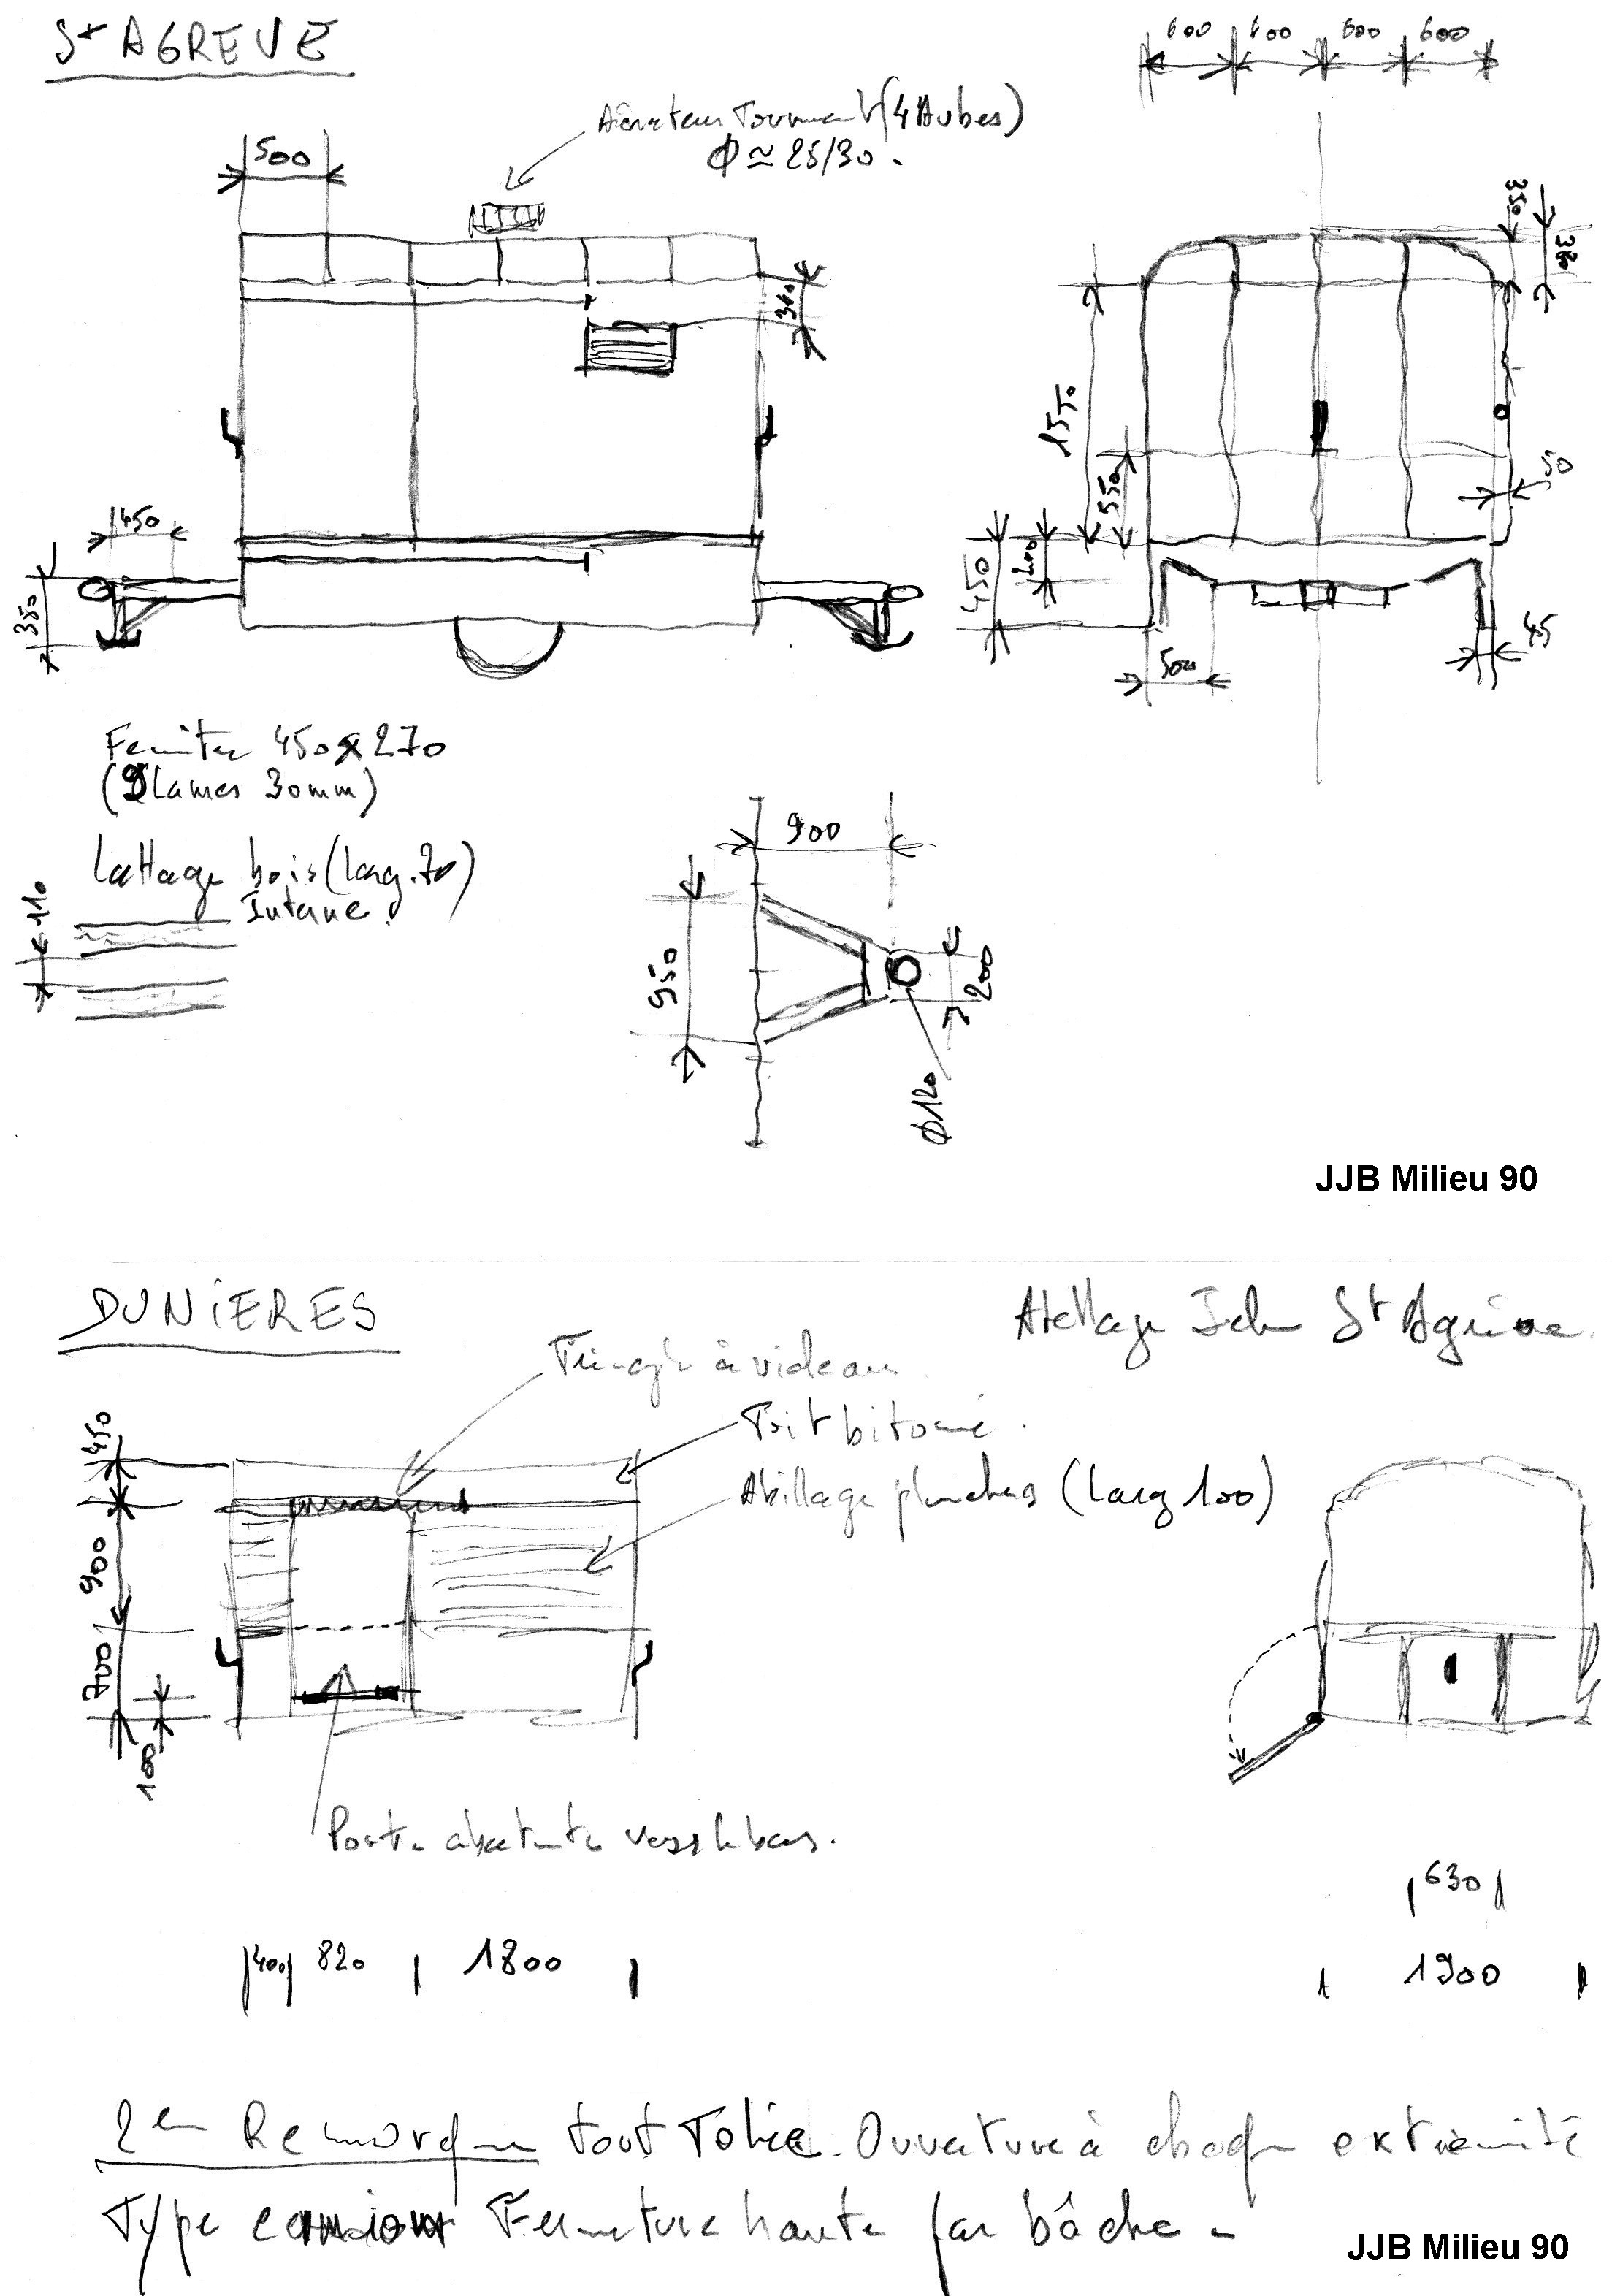 St AGREVE
600 600 600 600
Aérateur Tournant (4 Aubes)
Φ ≃ 25/30.
500
350
300
1550
550
50
450
350
450
400
500
45
Fenêtre 450x270
(9 Lames 30mm)
Lattage bois (larg. 70)
Interne
110
900
950
200
Φ120
JJB Milieu 90
DUNiERES
Attellage Idem St Agrève
Tringle à rideau
Toit bitumé.
Abillage planches (larg 100)
450
900
700
100
Porte abattante vers le bas.
630
400 820 1800
1900
2em Remorque tout Tolée. Ouverture à chaque extrémité
Type camion Fermeture haute par bâche -
JJB Milieu 90